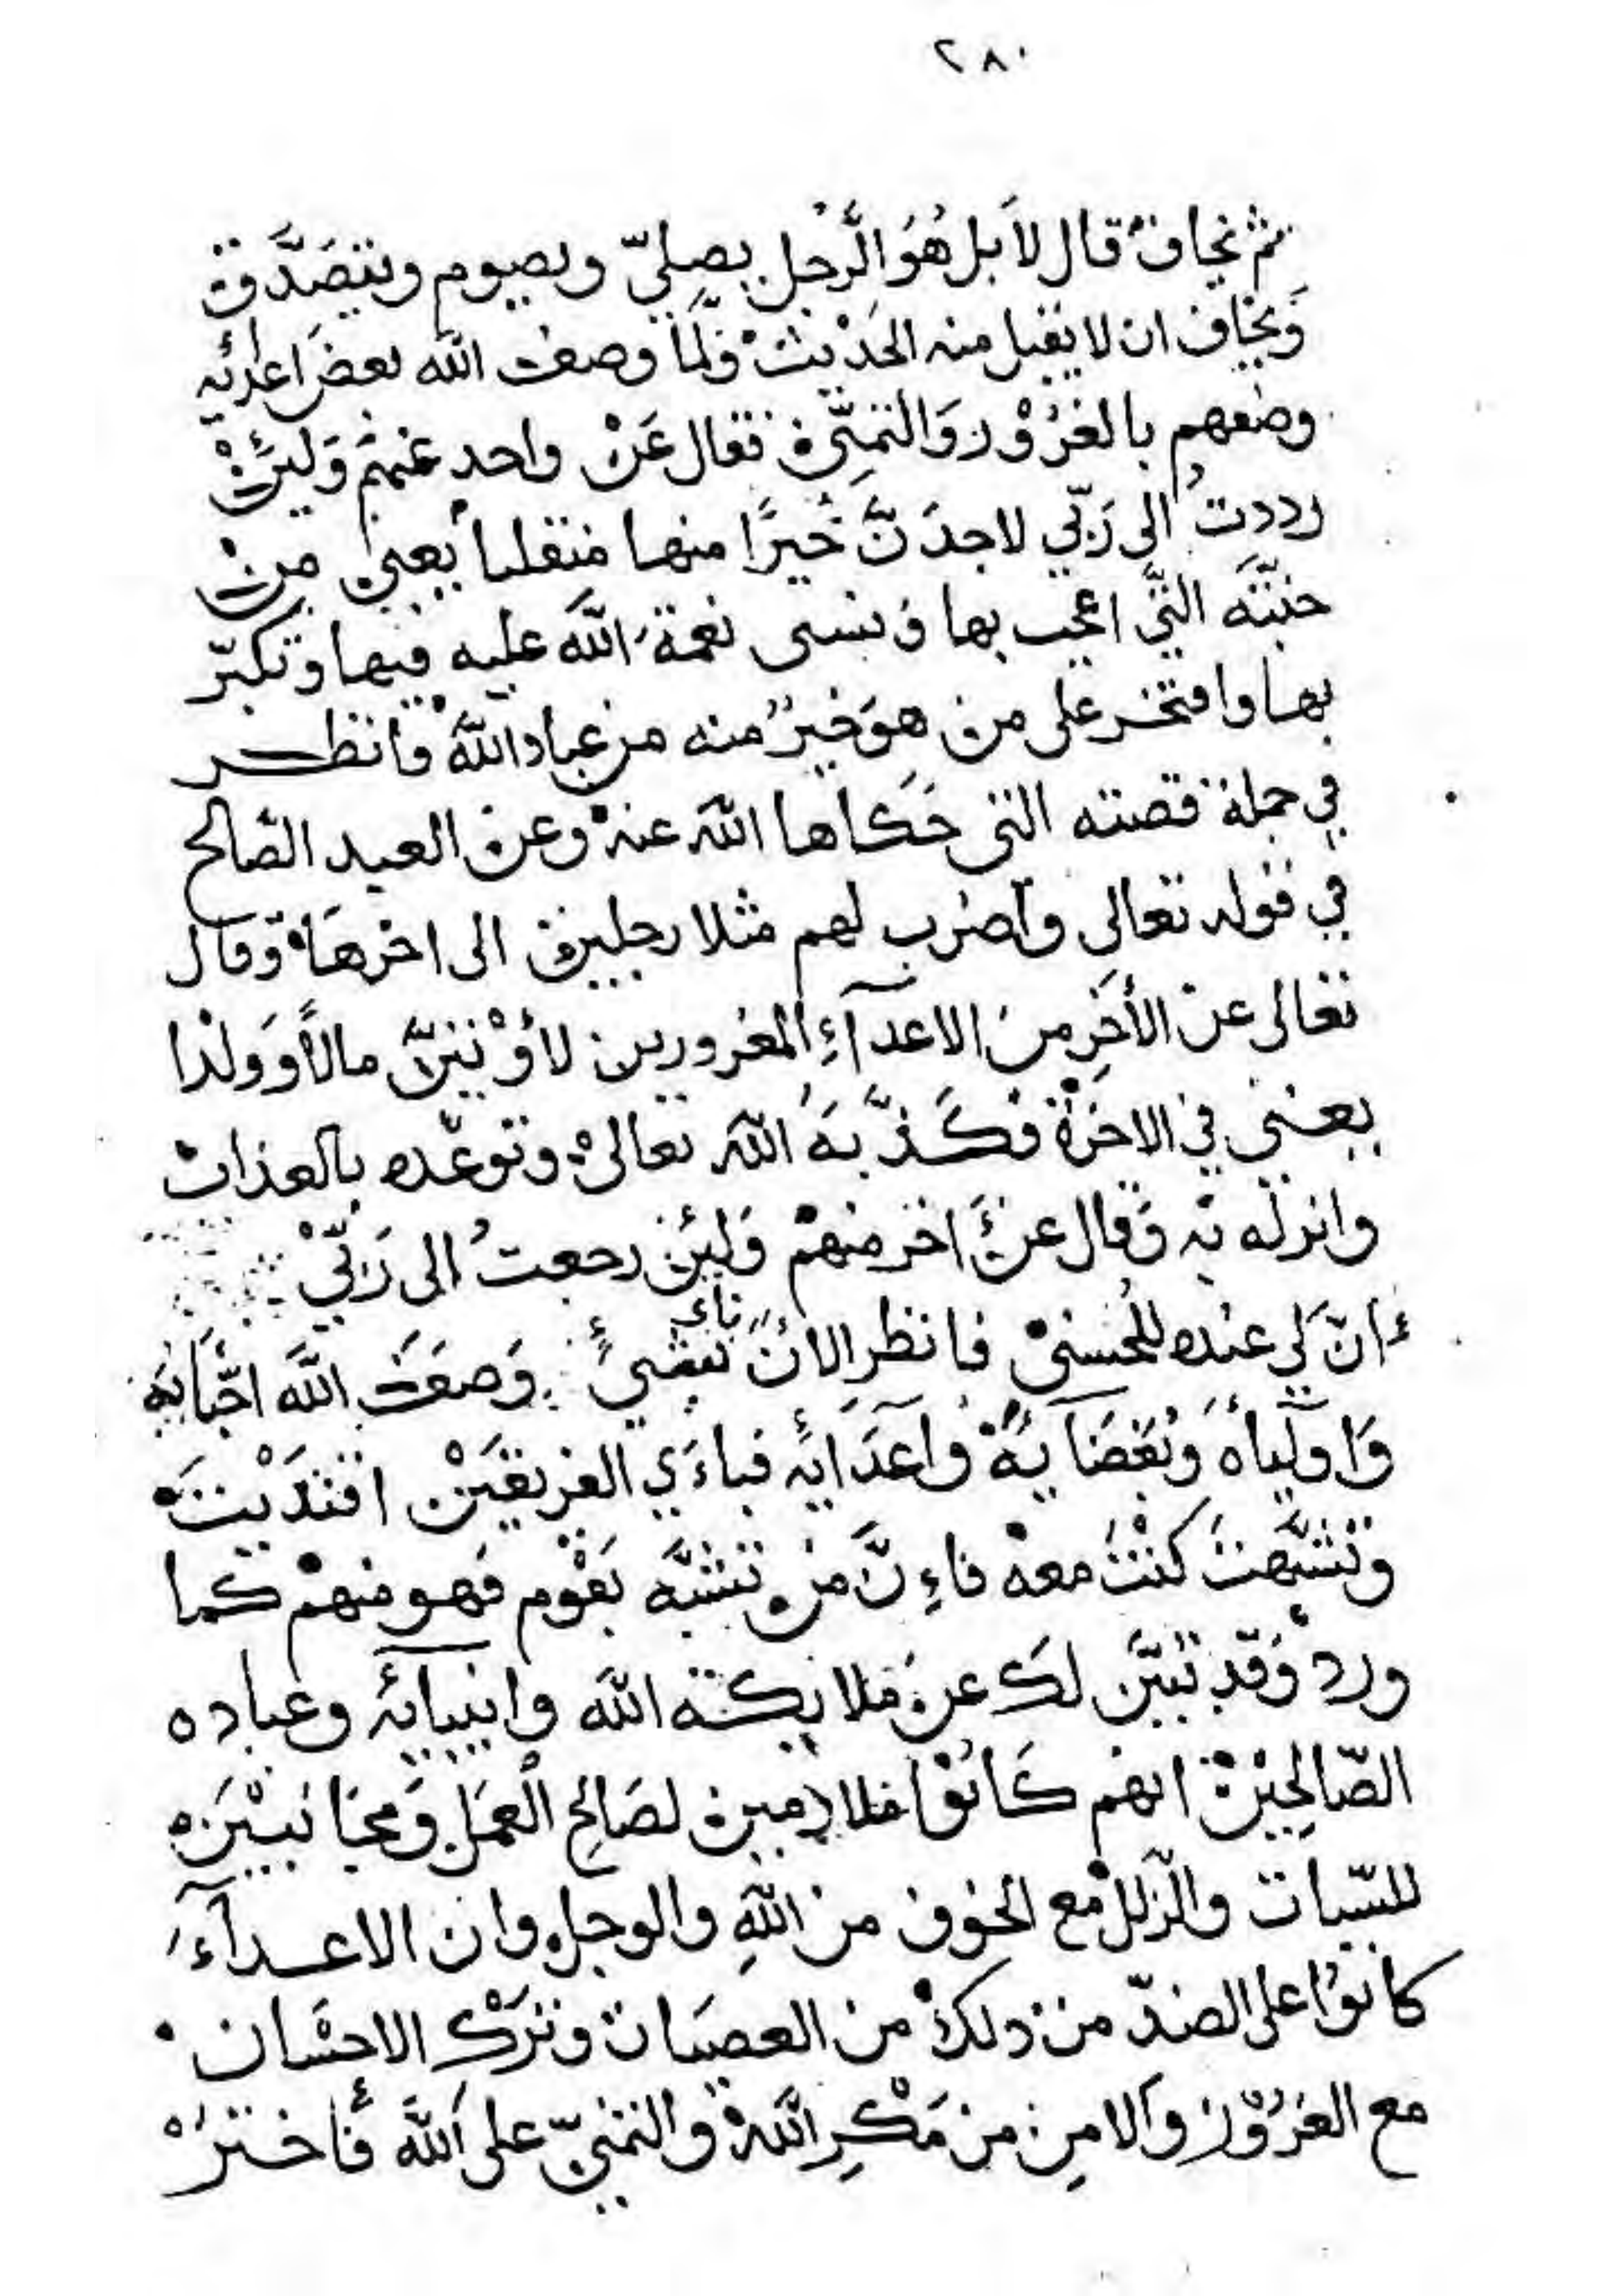 ٢٨٠
ثم يخاف قال لا بل هُوَ الرَّجُل يصلّي ويصوم ويتصَدَّق
وَيخاف ان لا يقبل منه الحَدْيث وَلمّا وصف الله بعضَ اعدائه
وصفهم بالغُرُوْر وَالتمنِّي فقال عَنْ واحد منهم وَلئِنْ
رددتُ الى رَبّي لاجدَنَّ خَيرًا منها منقلبا يعني من
جنَّته التّي اعجب بها ونسى نعمةَ اللَّه عليه فيها وتكبّر
بها وافتخر على من هوَ خيرٌ منه من عباد اللَّه فانظر
في جملة قصته التي حَكاها الله عنه وعن العبد الصّالح
في قوله تعالى واضرب لهم مثلا رجلين الى اخرهَا وقال
تعالى عن الأخرِ منَ الاعدآءِ المغرورين لأُوْتينَّ مالًا وَولدًا
يعني في الاخرَة فكَذَّبهَ الله تعالى وتوعّده بالعذاب
وانزله به وَقال عن اخر منهم وَلئِن رجعتُ الى رَبّيْ
ءانّ لي عنده للحُسنى فانظر الانَ بَايّ شيءٍ وَصفَ اللَّه احبَّايَه
وَاوليآهَ وَبُغضَايَهُ وَاَعدَايِه فباءَي الفريقيَنْ اقتدَيْتَ
وتشبَّهتَ كنْتَ معه فاءِنَّ من تشبَّه بقَوْم فهو منهم كما
ورد وَقد تبيَّن لك عن ملايكة اللَّه وانبيائه وعباده
الصّالحِيْن انهم كَانُوْا ملازمين لصَالح الْعمَل وَمجَانبيْنَ
للسّيات والزّلل مع الخوف من اللَّهِ والوجل وان الاعدآءَ
كانوُا على الضدّ من ذلك من العصيَان وتَرْك الاحسَان
مع الغرُوْر وَالامن من مَكْرِ اللَّه والتمنيّ على اللَّه فَاختَرْ